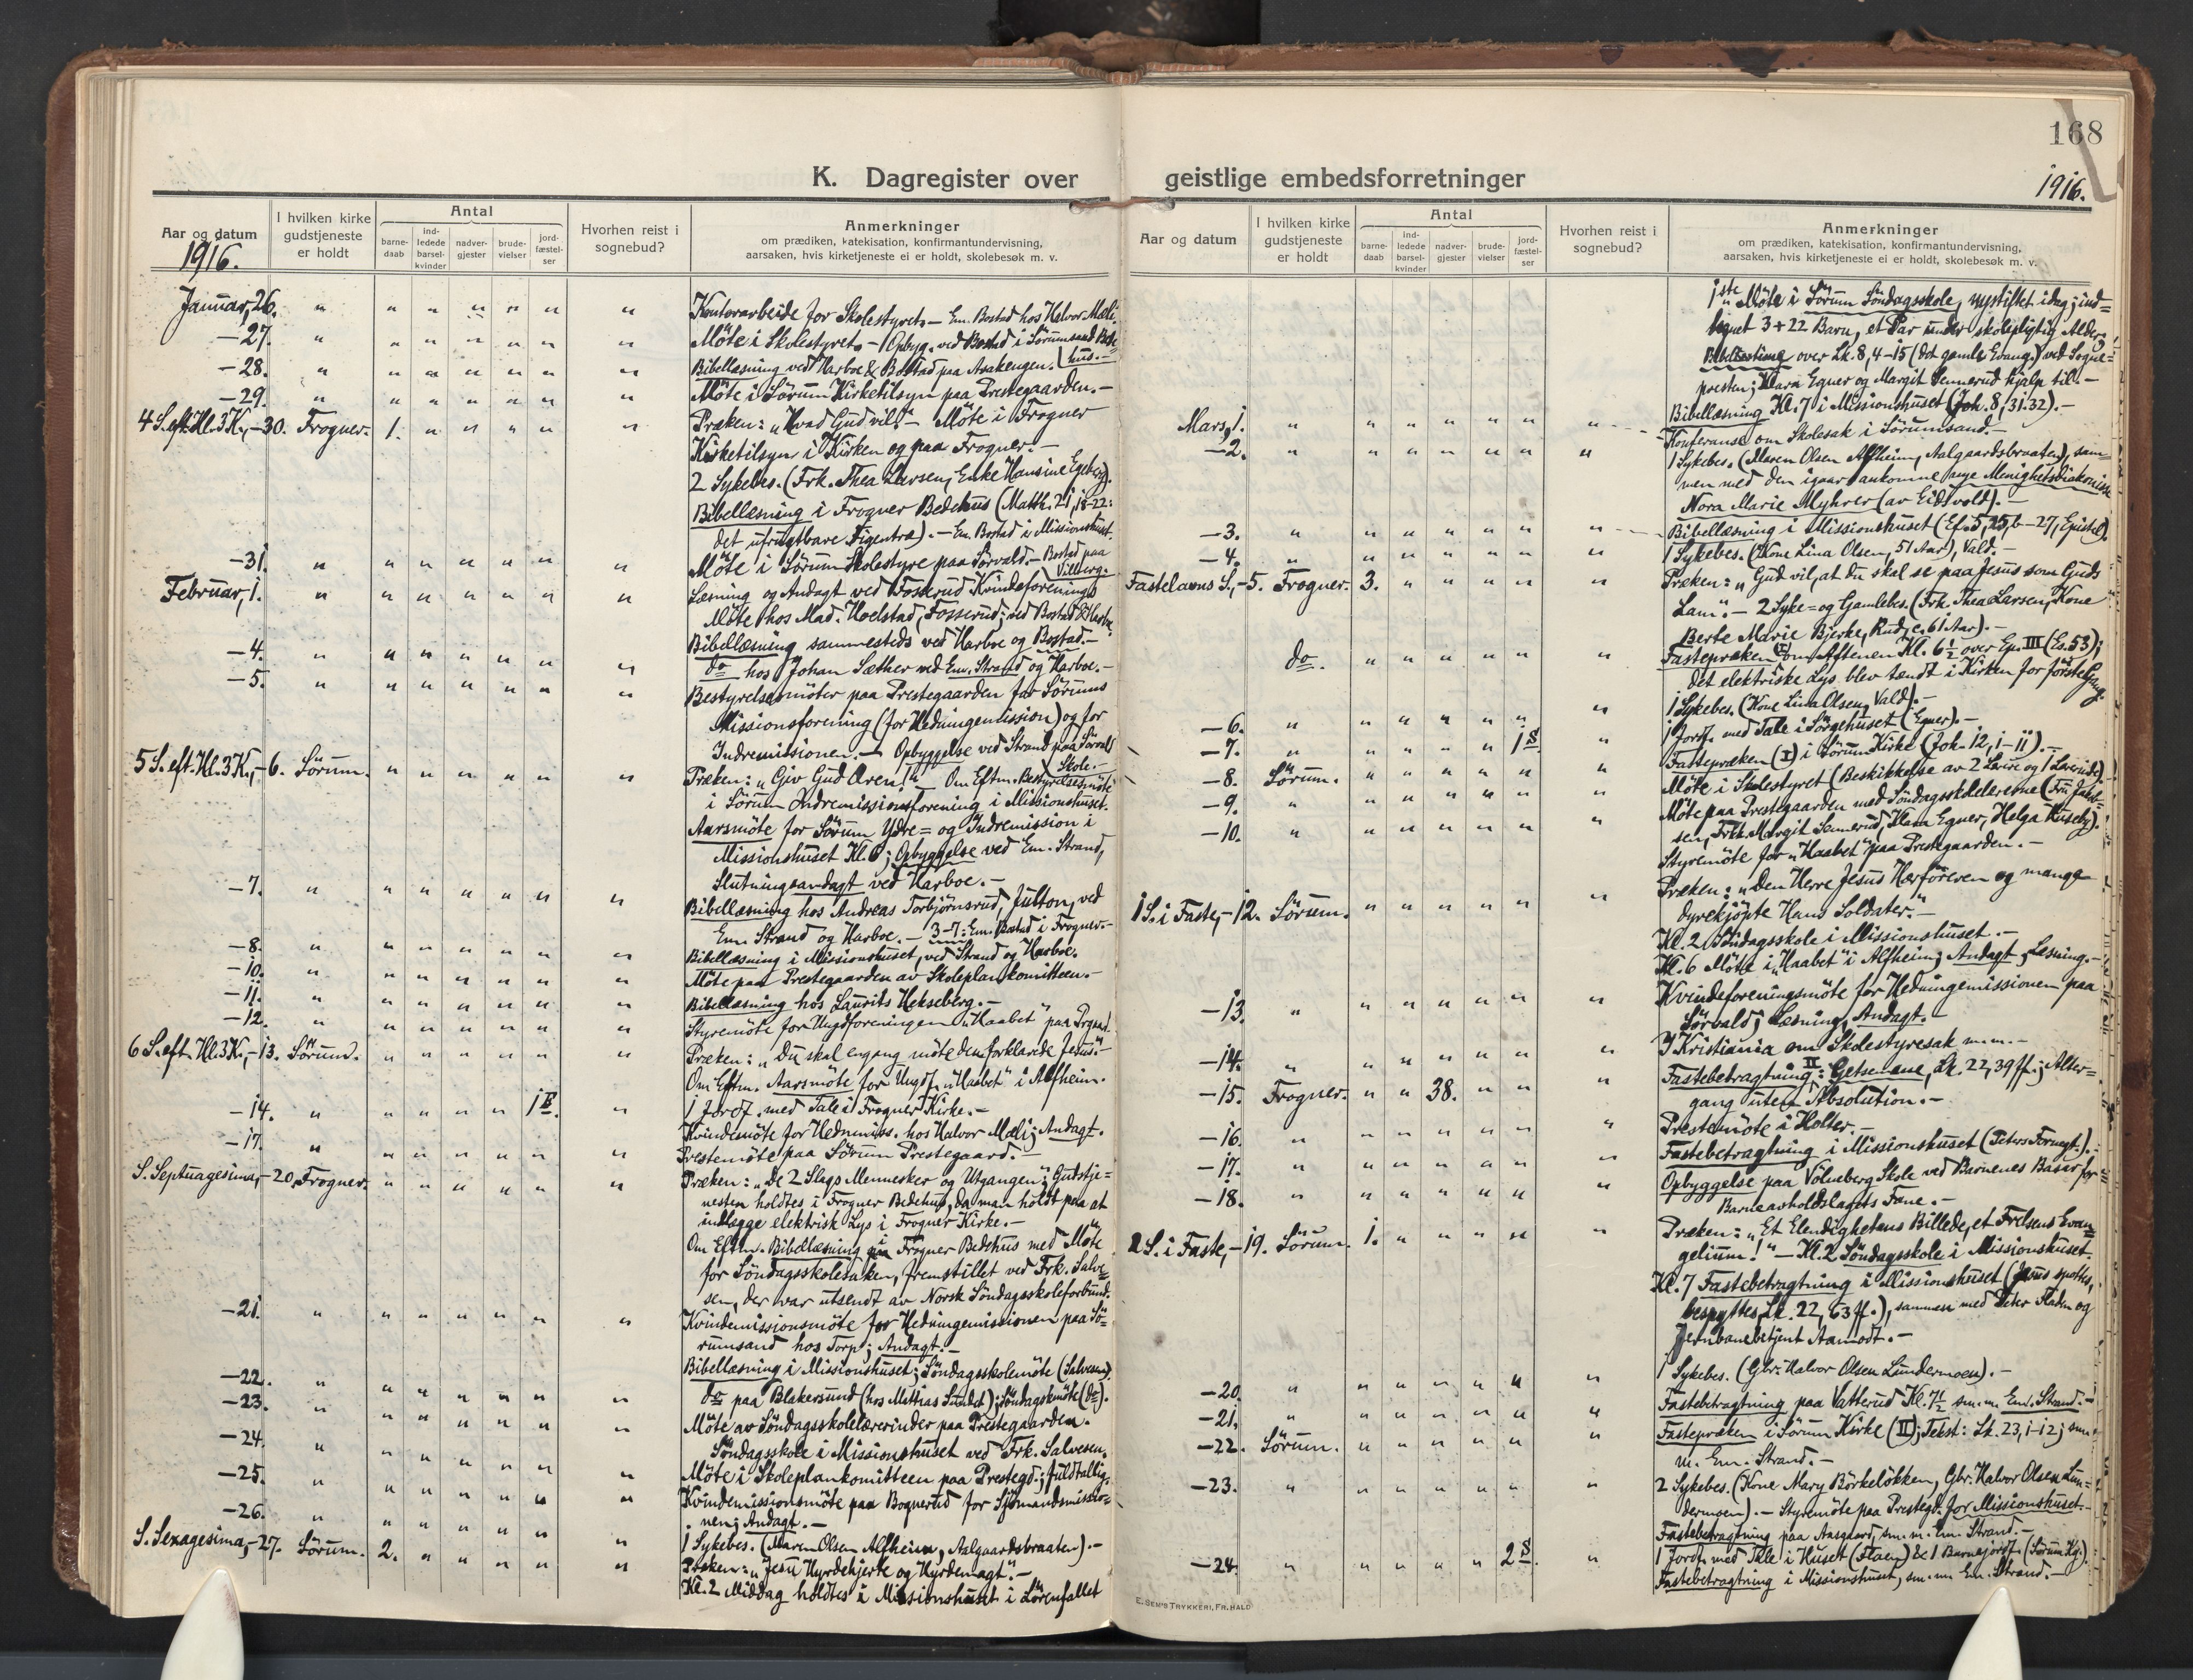 168
K. Dagregister over geistlige embedsforretninger
1916.
Aar og datum
1916.
I hvilken kirke gudstjeneste er holdt
Antal
barnedaab
indledede barselkvinder
nadvergjester
brudevielser
jordfæstelser
Hvorhen reist i sognebud?
Anmerkninger
om prædiken, katekisation, konfirmantundervisning,
aarsaken, hvis kirketjeneste ei er holdt, skolebesøk m. v.
Januar, 26. " " " " " " " Kontorarbeide for Skolestyret. — Em. Bostad hos Halvor Mæli.
—27. " " " " " " " Möte i Skolestyret. — 1 Opbyg. ved Bostad i Sörumsand Bede-
hus. —
—28. " " " " " " " Bibellæsning ved Harboe & Bostad paa Asakengen.
—29. " " " " " " " Möte i Sörum Kirketilsyn paa Prestegaarden. —
4 S. eft. Hl. 3 K., —30. Frogner. 1. " " " " " Præken: „Hvad Gud vil." — Möte i Frogner
Kirketilsyn i Kirken og paa Frogner. —
2 Sykebes. (Frk. Thea Larsen, Enke Hansine Egeberg).
Bibellæsning i Frogner Bedehus (Matth. 21, 18-22:
det ufrugtbare Figentræ). — Em. Bostad i Missionshuset.
—31. " " " " " " " Möte i Sörum Skolestyre paa Sörvald. — Bostad paa
Vilberg. —
Februar, 1. " " " " " " " Læsning og Andagt ved Fosserud Kvindeforenings
Möte hos Mad. Hoelstad, Fosserud; ved Bostad & Harboe.
Bibellæsning sammesteds ved Harboe og Bostad. —
—4. " " " " " " " do hos Johan Sæther ved Em. Strand og Harboe. —
—5. " " " " " " " Bestyrelsesmöter paa Prestegaarden for Sörums
Missionsforening (for Hedningemission) og for
Indremissionen. — Opbyggelse ved Strand paa Sörvald
Skole. —
5 S. eft. Hl. 3 K., —6. Sörum. " " " " " " Præken: „Giv Gud Æren!" Om Eftm. Bestyrelsesmöte
i Sörum Indremissionsforening i Missionshuset.
Aarsmöte for Sörum Ydre= og Indremission i
Missionshuset Kl. 6; Opbyggelse ved Em. Strand,
Slutningsandagt ved Harboe. —
—7. " " " " " " " Bibellæsning hos Andreas Torbjörnsrud, Julton, ved
Em. Strand og Harboe. — 3-7: Em. Bostad i Frogner. —
—8. " " " " " " " Bibellæsning i Missionshuset, ved Strand og Harboe.
—10. " " " " " " " Möte paa Prestegaarden av Skoleplankomitteen. —
—11. " " " " " " " Bibellæsning hos Laurits Hekseberg. —
—12. " " " " " " " Styremöte for Ungdforeningen „Haabet" paa Prgaard.
6 S. eft. Hl. 3 K., —13. Sörum. " " " " " " Præken: „Du skal engang möte den forklarede Jesus." —
Om Eftm. Aarsmöte for Ungdf. „Haabet" i Alfheim.
—14. " " " " " 1 F. " 1 Jordf. med Tale i Frogner Kirke. —
Kvindemöte for Hednmiss. hos Halvor Mæli; Andagt.
—17. " " " " " " " Prestemöte paa Sörum Prestegaard. —
S. Septuagesima, —20. Frogner. " " " " " " Præken: „De 2 Slags Mennesker og Utgangen"; Gudstje=
nesten holdtes i Frogner Bedehus, da man holdt paa at
indlægge elektrisk Lys i Frogner Kirke. —
Om Eftm. Bibellæsning i Frogner Bedehus med Möte
for Söndagsskolesaken, fremstillet ved Frk. Salve=
sen, der var utsendt av Norsk Söndagsskoleforbund.
—21. " " " " " " " Kvindemissionsmöte for Hedningemissionen paa Sö=
rumsand hos Torp; Andagt. —
—22. " " " " " " " Bibellæsning i Missionshuset; Söndagsskolemöte (Salvesen).
—23. " " " " " " " do paa Blakersund (hos Mathias Sundet); Söndagskmöte (do).
Möte av Söndagsskolelærerinder paa Prestegaarden.
—24. " " " " " " " Söndagsskole i Missionshuset ved Frk. Salvesen.
—25. " " " " " " " Möte i Skoleplankomitteen paa Prestegd.; fuldtallig.
Kvindemissionsmöte paa Bognerud for Sjömandsmissio=
nen; Andagt. —
—26. " " " " " " " 1 Sykebes. (Maren Olsen Alfheim, Aalgaardsbraaten). —
S. Sexagesima, —27. Sörum. 2. " " " " " Præken: „Jesu Hyrdehjerte og Hyrdemagt". —
Kl. 2 Middag holdtes i Missionshuset i Lörenfallet
Aar og datum
I hvilken kirke gudstjeneste er holdt
Antal
barnedaab
indledede barselkvinder
nadvergjester
brudevielser
jordfæstelser
Hvorhen reist i sognebud?
Anmerkninger
om prædiken, katekisation, konfirmantundervisning,
aarsaken, hvis kirketjeneste ei er holdt, skolebesøk m. v.
1ste Möte i Sörum Söndagsskole, nystiftet idag; ind=
tegnet 3+22 Barn, et Par under skolepligtig Alder;
Bibeltime over Lk. 8, 4-15 (det gamle Evang.) ved Sogne=
presten; Klara Egner og Margit Sennerud hjalp til. —
Bibellæsning Kl. 7 i Missionshuset (Joh. 8, 31.32). —
Mars, 1. " " " " " " " Konferanse om Skolesak i Sörumsand. —
—2. " " " " " " " 1 Sykebes. (Maren Olsen Alfheim, Aalgaardsbraaten), sam=
men med den igaar ankomne nye Menighetsdiakonisse
Nora Marie Myhrer (av Eidsvold). —
—3. " " " " " " " Bibellæsning i Missionshuset (Ef. 5, 25, b—27, Epistel).
—4. " " " " " " " 1 Sykebes. (Kone Lina Olsen, 51 Aar), Vald. —
Fastelavns S., —5. Frogner. 3. " " " " " Præken: „Gud vil, at du skal se paa Jesus som Guds
Lam". — 2 Syke= og Gamlebes. (Frk. Thea Larsen, Kone
Berte Marie Bjerke, Rud, c. 61 Aar). —
do. " " " " " " Fastepræken om Aftenen Kl. 6½ over Ep. III (Es. 53);
det elektriske Lys blev tændt i Kirken for förste Gang.
—6. " " " " " " " 1 Sykebes. (Kone Lina Olsen, Vald). —
—7. " " " " " 1 S. " 1 Jordf. med Tale i Sörgehuset (Egner). —
—8. Sörum. " " " " " " Fastepræken (I) i Sörum Kirke (Joh. 12, 1-11). —
—9. " " " " " " " Möte i Skolestyret (Beskikkelse av 2 Lærere og 1 Lærerinde). —
—10. " " " " " " " Möte paa Prestegaarden med Söndagsskolelærerne (Fru Jakob=
sen, Frk. Margit Sennerud, Klara Egner, Helga Huseby).
Styremöte for „Haabet" paa Prestegaarden. —
1 S. i Faste, —12. Sörum. " " " " " " Præken: „Den Herre Jesus Hærföreren og mange
dyrekjöpte Hans Soldater." —
Kl. 2 Söndagsskole i Missionshuset. —
Kl. 6 Möte i „Haabet" i Alfheim; Andagt, Læsning. —
—13. " " " " " " " Kvindeforeningsmöte for Hedningemissionen paa
Sörvald; Læsning, Andagt. —
—14. " " " " " " " I Kristiania om Skolestyresak m.m. —
—15. Frogner. " " 38. " " " Fastebetragtning II: Getsemane, Lk. 22, 39 ff.; Alter=
gang uten Absolution. —
—16. " " " " " " " Prestemöte i Holter. —
—17. " " " " " " " Fastebetragtning i Missionshuset (Peters Fornegt.). —
—18. " " " " " " " Opbyggelse paa Völneberg Skole ved Barnenes Basar for
Barneavholdslagets Fane. —
2 S. i Faste, —19. Sörum. 1. " " " " " Præken: „Et Elendighetens Billede, et Frelsens Evan=
gelium!" — Kl. 2 Söndagsskole i Missionshuset.
Kl. 7 Fastebetragtning i Missionshuset (Jesus spottes,
bespyttes, Lk. 22, 63 ff.), sammen med Peter Fladen og
Jernbanebetjent Aamodt. —
—20. " " " " " " " 1 Sykebes. (Gbr. Halvor Olsen Lundermoen). —
—21. " " " " " " " Fastebetragtning paa Vatterud Kl. 7½ sm. m. Em. Strand. —
—22. Sörum. " " " " " " Fastepræken i Sörum Kirke (II); Tekst: Lk. 23, 1-12; sm.
m. Em. Strand. —
—23. " " " " " " " 2 Sykebes. (Kone Mary Börkelökken, Gbr. Halvor Olsen Lun=
dermoen). — Styremöte paa Prestegd. for Missionshuset. —
Fastebetragtning paa Aasgaard, sm. m. Em. Strand. —
—24. " " " " " 2 S. " 1 Jordf. med Tale i Huset (Flaen) & 1 Barnejordf. (Sörum Kg.).
Fastebetragtning i Missionshuset, sm. m. Em. Strand. —
E. SEM'S TRYKKERI, FR.HALD